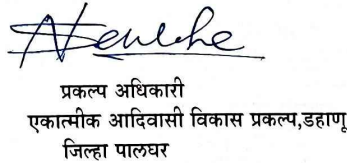 प्रकल्प अधिकारी
एकात्मीक आदिवासी विकास प्रकल्प,डहाणू
जिल्हा पालघर